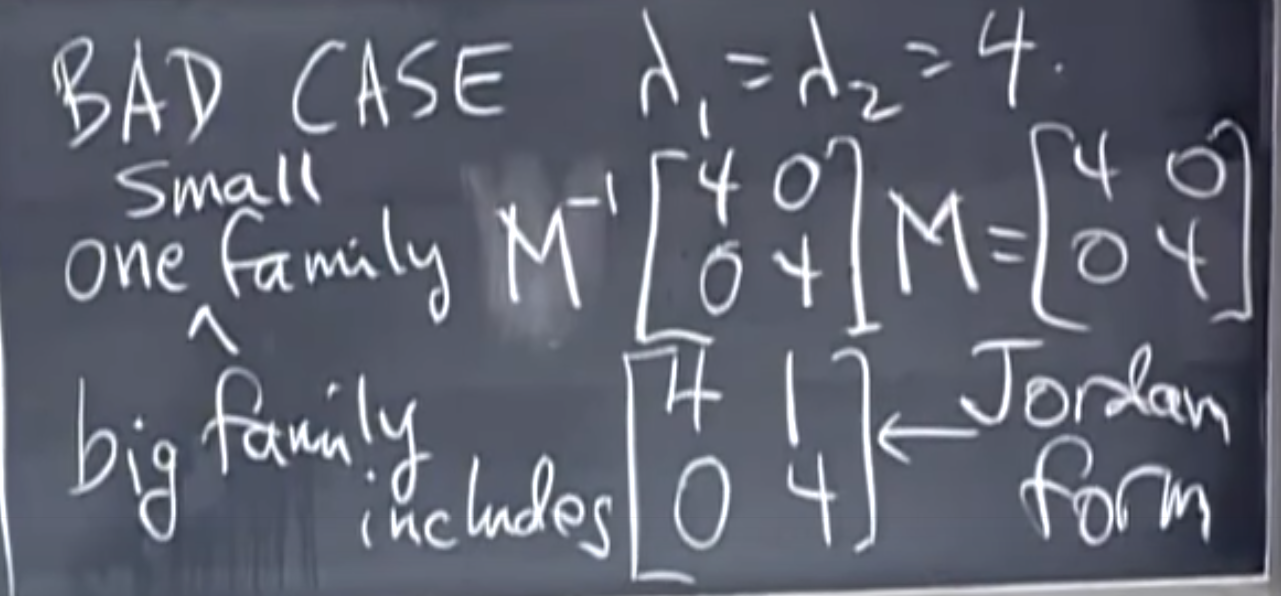 BAD CASE λ₁ = λ₂ = 4.
small
one ^ family M⁻¹ [4 0; 0 4] M = [4 0; 0 4]
big family includes [4 1; 0 4] ← Jordan form